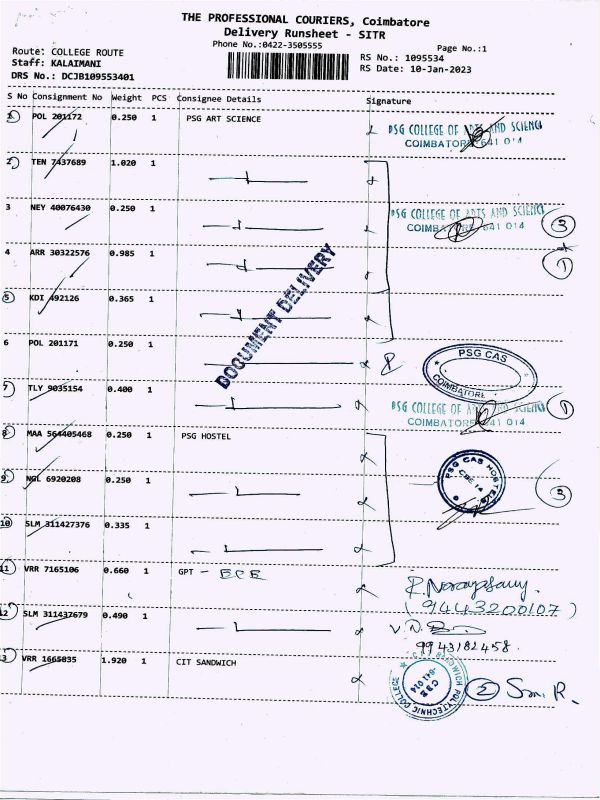 THE PROFESSIONAL COURIERS, Coimbatore
Delivery Runsheet - SITR
Phone No.:0422-3505555
Page No.:1
Route: COLLEGE ROUTE
Staff: KALAIMANI
DRS No.: DCJB109553401
RS No.: 1095534
RS Date: 10-Jan-2023
S No Consignment No Weight PCS Consignee Details Signature
1 POL 201172 0.250 1 PSG ART SCIENCE
PSG COLLEGE OF ARTS AND SCIENCE
COIMBATORE 641 014
2 TEN 7437689 1.020 1
3 NEY 40076430 0.250 1
PSG COLLEGE OF ARTS AND SCIENCE
COIMBATORE 641 014
3
4 ARR 30322576 0.985 1
1
5 KDI 492126 0.365 1
DOCUMENT DELIVERY
6 POL 201171 0.250 1
PSG CAS
COIMBATORE
7 TLY 9035154 0.400 1
PSG COLLEGE OF ARTS AND SCIENCE
COIMBATORE 641 014
1
8 MAA 564405468 0.250 1 PSG HOSTEL
9 NGL 6920208 0.250 1
PSG CAS HOSTELS
CBE-14
3
10 SLM 311427376 0.335 1
11 VRR 7165106 0.660 1 GPT - ECE
R. Narayasamy.
(9443200107)
12 SLM 311437679 0.490 1
9943182458.
13 VRR 1665835 1.920 1 CIT SANDWICH
SANDWICH POLYTECHNIC COLLEGE
CBE
641 014
2